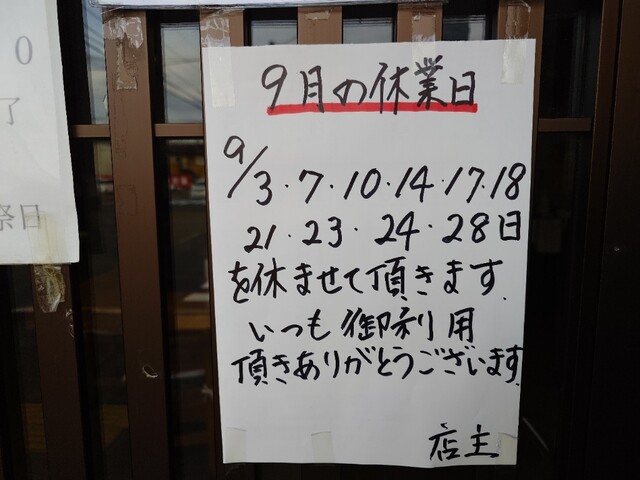 0
了
祭日
9月の休業日
9/3・7・10・14・17・18
21・23・24・28日
を休ませて頂きます.
いつも御利用
頂きありがとうございます.
店主